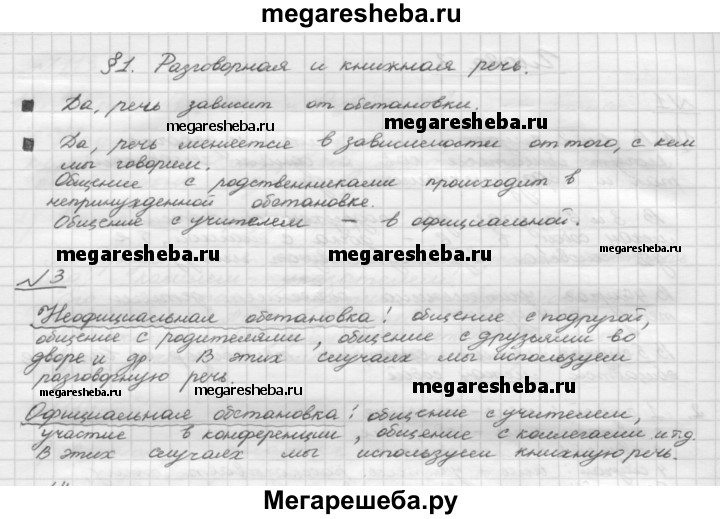 megaresheba.ru
§1. Разговорная и книжная речь.
Да, речь зависит от обстановки.
megaresheba.ru
megaresheba.ru
Да, речь меняется в зависемостеи от того, с кем
мы говорим.
megaresheba.ru
Общение с родственниками происходит в
непринужденной обстановке.
Общение с учителем – в официальной.
megaresheba.ru
megaresheba.ru
megaresheba.ru
№3
Неофициальная обстановка: общение с подругой,
общение с родителями, общение с друзьями во
дворе и др. В этих случаях мы используем
разговорную речь.
megaresheba.ru
megaresheba.ru
megaresheba.ru
Официальная обстановка: общение с учителем,
участие в конференции, общение с коллегами и т.д.
В этих случаях мы используем книжную речь.
Мегарешеба.ру